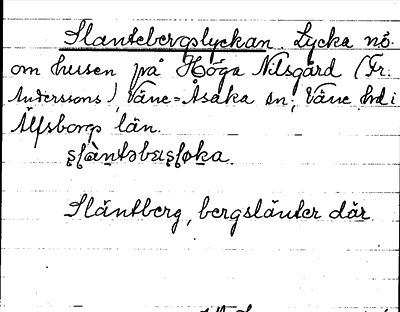 Slantebergslyckan. Lycka nö.
om husen på Höga Nilsgård (Fr.
Anderssons), Väne-Åsaka sn, Väne hd i
Älfsborgs län.
Släntberg, bergslänter där